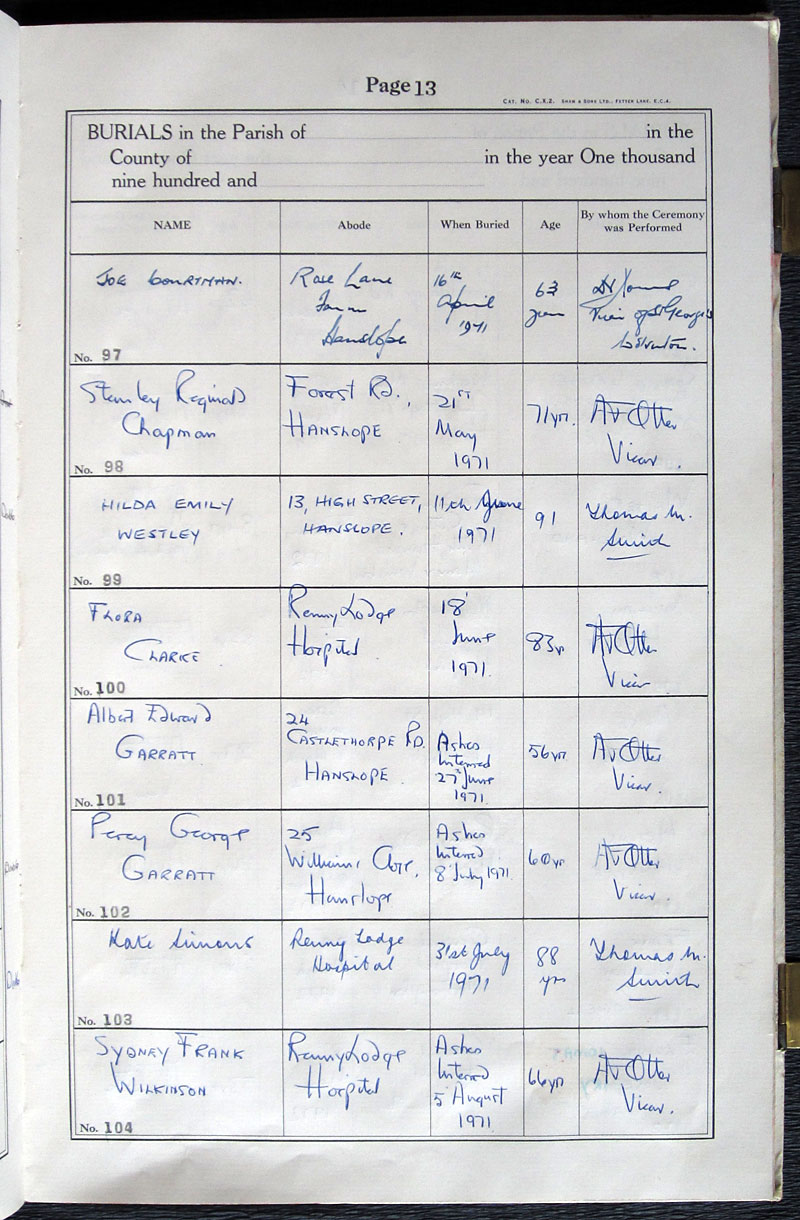 Page 13
CAT. NO. C.X.Z. SHAW & SONS LTD., FETTER LANE, E.C.4.
BURIALS in the Parish of in the
County of in the year One thousand
nine hundred and
NAME
Abode
When Buried
Age
By whom the Ceremony
was Performed
JOE
No. 97
Rose Lane
Farm
Hanslope
16th
April
1971
63
years
Vicar of St George's
Wolverton.
Stanley Reginald
Chapman
No. 98
Forest RD.,
HANSLOPE
21st
May
1971
71 yrs.
Vicar.
HILDA EMILY
WESTLEY
No. 99
13, HIGH STREET,
HANSLOPE.
11th June
1971
91
Thomas M.
FLORA
CLARKE
No. 100
Renny Lodge
Hospital
18
June
1971.
83
Vicar
Albert Edward
GARRATT
No. 101
24
CASTLETHORPE RD.
HANSLOPE
Ashes
Interred
27th June
1971.
56 yrs
Vicar.
Percy George
GARRATT
No. 102
25
Williams Close,
Hanslope
Ashes
Interred
8 July 1971.
60 yrs
Vicar.
Kate Simons
No. 103
Renny Lodge
Hospital
31st July
1971
88
yrs
Thomas M.
SYDNEY FRANK
WILKINSON
No. 104
Renny Lodge
Hospital
Ashes
Interred
5 August
1971.
66 yrs
Vicar.